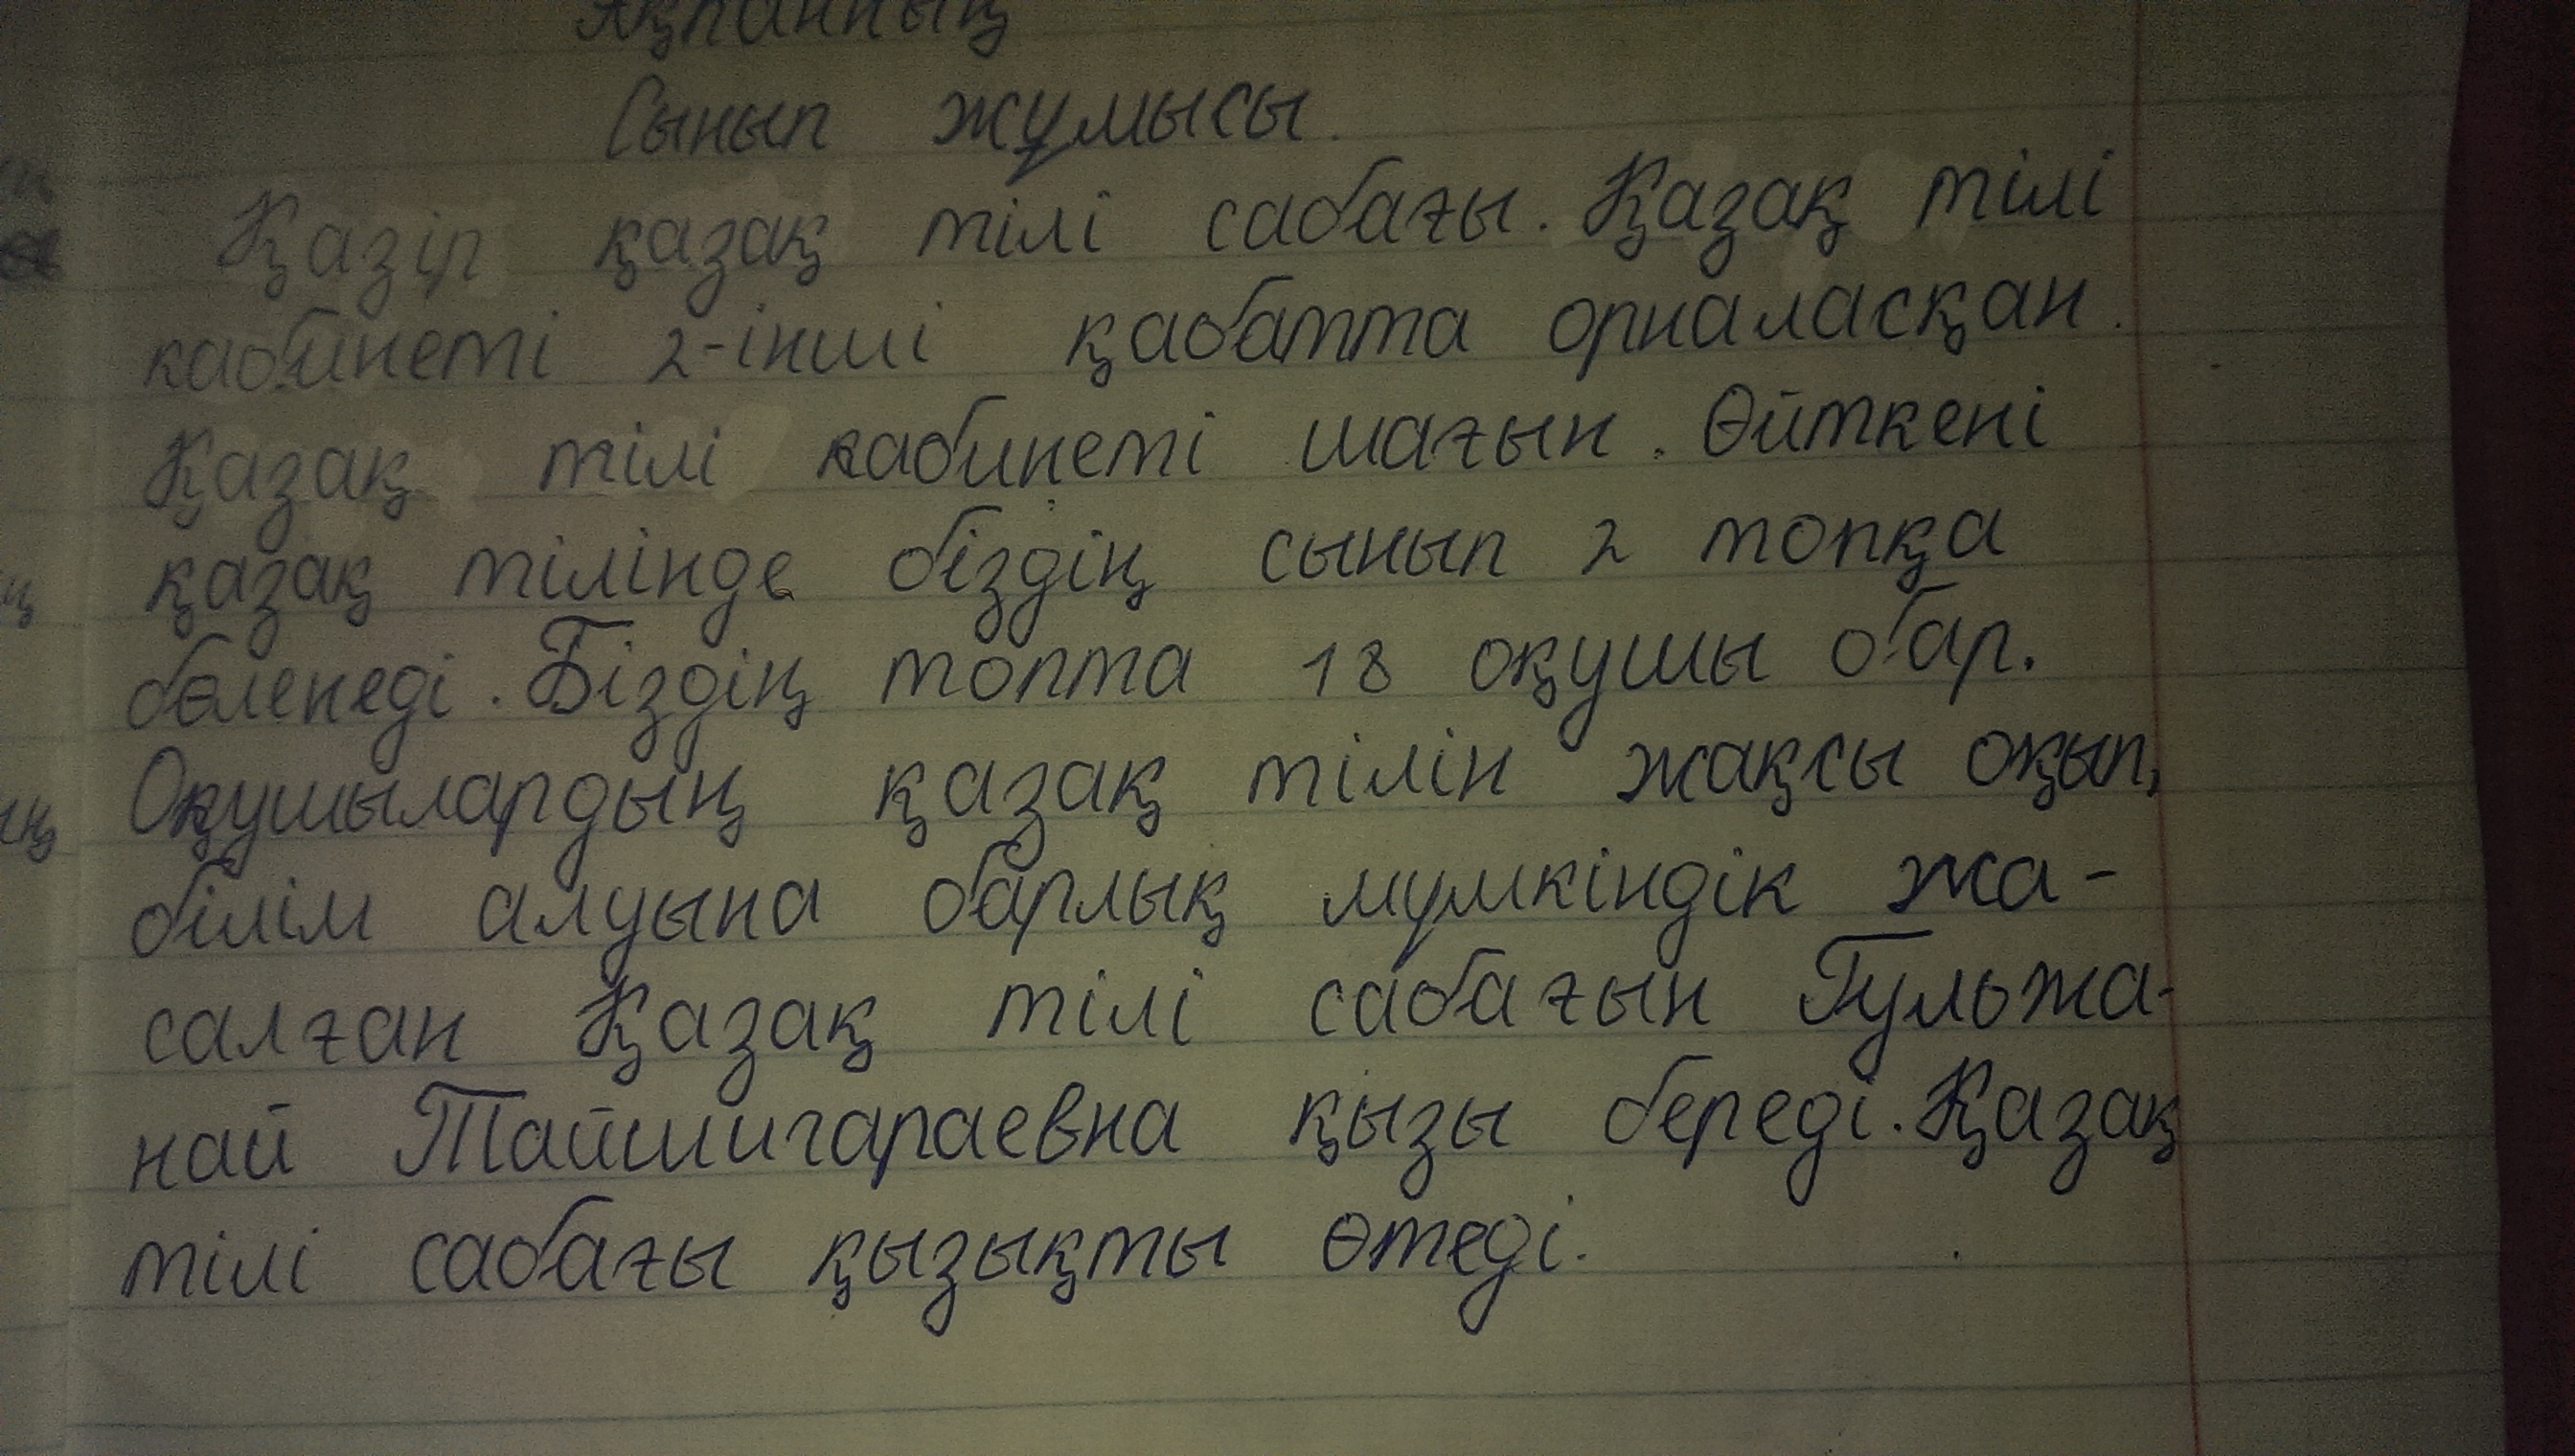 Ақпанның
Сынып жұмысы.
Қазір қазақ тілі сабағы. Қазақ тілі
кабинеті 2-інші қабатта орналасқан.
Қазақ тілі кабинеті шағын. Өйткені
қазақ тілінде біздің сынып 2 топқа
бөленеді. Біздің топта 18 оқушы бар.
Оқушылардың қазақ тілін жақсы оқып,
білім алуына барлық мүмкіндік жа-
салған Қазақ тілі сабағын Гульжа-
най Тайшигараевна қызы береді. Қазақ
тілі сабағы қызықты өтеді.